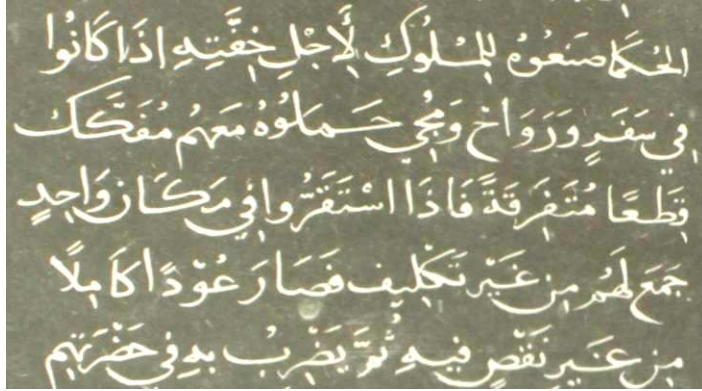 الحُكَمَا صَنَعُوهُ لِلمُلُوكِ لِأَجْلِ خِفَّتِهِ اِذَا كَانُوا
فِي سَفَرٍ وَرَوَاحْ وَمُجِي حَمَلُوهُ مَعَهُمْ مُفَكَّكْ
قِطَعًا مُتَفَرِقَةً فَاذَا اسْتَقَرُّوا فِي مَكَانٍ وَاحِدٍ
جَمَعَ لَهُمْ مِنْ غَيْرِ تَكْلِيف فَصَارَ عُوْدًا كَامِلًا
مِن غَيرِ نَقْصٍ فِيهِ ثُمَّ يَضْرِبُ بِهِ فِي حَضْرَتِهِم